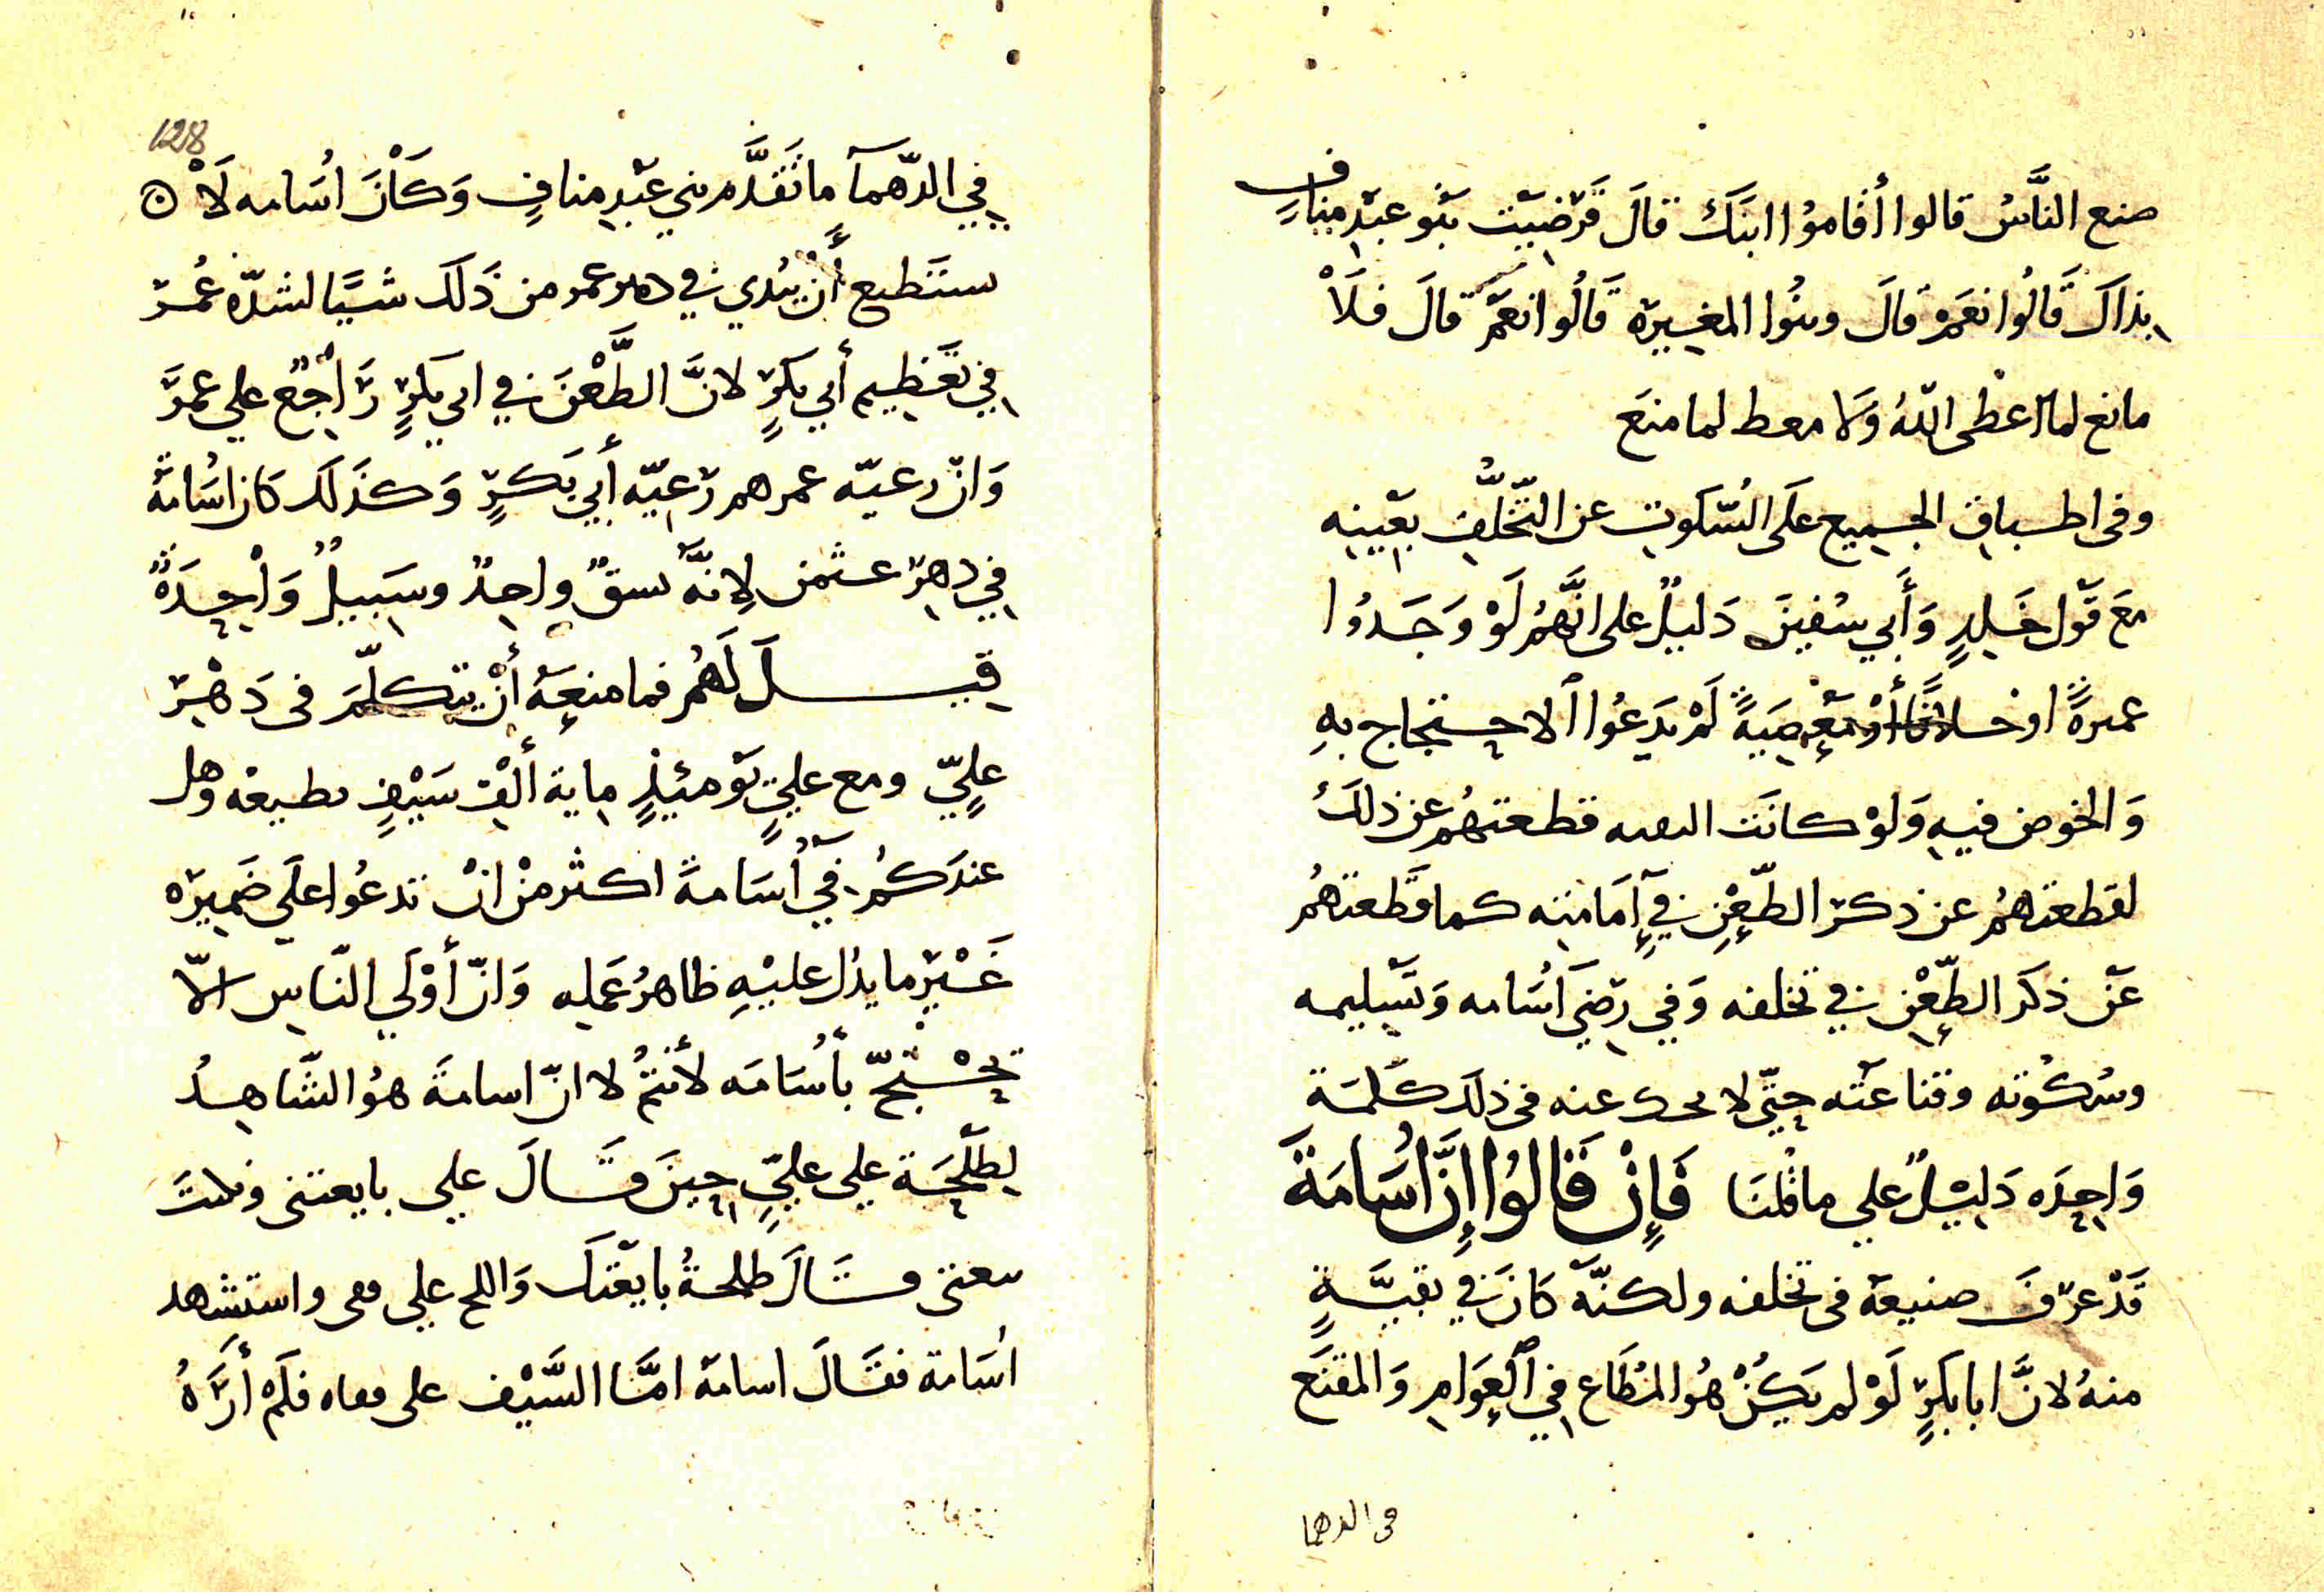 صنع النَّاسُ قالوا أقاموُا ابنَكَ قالَ فَرَضِيَت بَنُو عبْدِ منافٍ
بِذاكَ قَالُوا نعَمْ قالَ وبنُوا المغيرَه قَالُوا نعَمْ قالَ فلَاْ
مانع لما اعْطى اللّهُ وَلا معط لما منعَ
وفى اطباقِ الجميع علَى السّكوتِ عن التّخلُّفِ بعَيْنِه
معَ قَوْل خَلِدٍ وَأَبي سُفينَ دَليلٌ على انَّهُم لَوْ وَجَدُوا
عمرةً او خلافًا أوْ معْصِيَةً لَمْ يَدَعُوا الاحتجاج بهِ
وَالخوض فيهِ وَلوْ كانَت التقيه قطعتهُم عن ذلكَ
لقطعتهُم عن ذكر الطّعْنِ في إمَامَتِه كما قَطعتهُم
عَنْ ذكَر الطّعْنِ في تخلفه وَفي رِضَى اُسَامه وَتسْليمه
وسُكوُته وقناعَته حتّى لا يحك عنه فى ذلكَ كَلمَة
وَاحِدَه دَليْلٌ علي ما قُلنَا فَإِنْ قَالوُا إِنَّ اُسَامَةَ
قَدْ عرَفَ صنيعَهَ فى تخلفه ولكنَّه كانَ في تقيَّةٍ
منهُ لانَّ ابا بكَرٍ لَوْ لم يَكنْ هُو المُطَاع في العَوَامِ وَالمقنَع
فى الدهما
128
في الدّهمآ ما تَقَدَّم بني عَبْدِ منافٍ وَكَاْنَ اُسَامه لَاْ
ستَطيع أَنْ يُبْدي في دهر عمر من ذَلكَ شيًَا لشدّه عُمرَ
في تَعْظيمِ أبي بكَرٍ لانَّ الطَّعْنَ في ابي بكَرٍ رَاجْعٌ علي عمرَ
وَانّ رعيّه عمر هم رَعيّه أبي بَكرٍ وَكذلَك كانَ اسُامَةَ
في دهرِ عثمن لِانَّه نسقٌ واحِدٌ وسَبيلٌ وَاْحِدَةٌ
قيلَ لَهُم فما منعَهُ أنْ يتكلّمَ فى دَهْرِ
علٍيّ ومع عليٍّ يَوْمئذٍ ماية ألْفِ سَيْفٍ تطيعه وهل
عندَكُم في اُسَامةَ اكثر منْ انْ تدعُوا علَي ضَميرَه
غَيْرَ ما يدُل عليْهِ ظاهرُ عَمله وَانّ أوْلَي النّاسِ الاّ
تَحْتَجّ باُسَامَه لأنتمُ لا انّ اسامةَ هوُ الشّاهدُ
لِطلْحَة علي عليٍّ حِينَ قَالَ علي بايعتنى ونكثتَ
بيعتى وقَالَ طلحةُ بايَعْتكَ وَاللج علي قفى واستشهد
اسُامة فقَالَ اسامة امَّا السَّيْف على قفاه فلَمْ أرَهُ